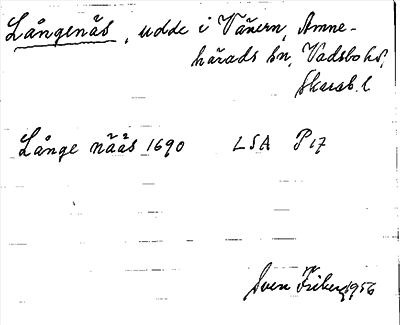 Långenäs, udde i Vänern, Amne-
härads sn, Vadsbo hd,
Skarab. l
Långe nääs 1690 LSA P 17
Sven Friberg 1956